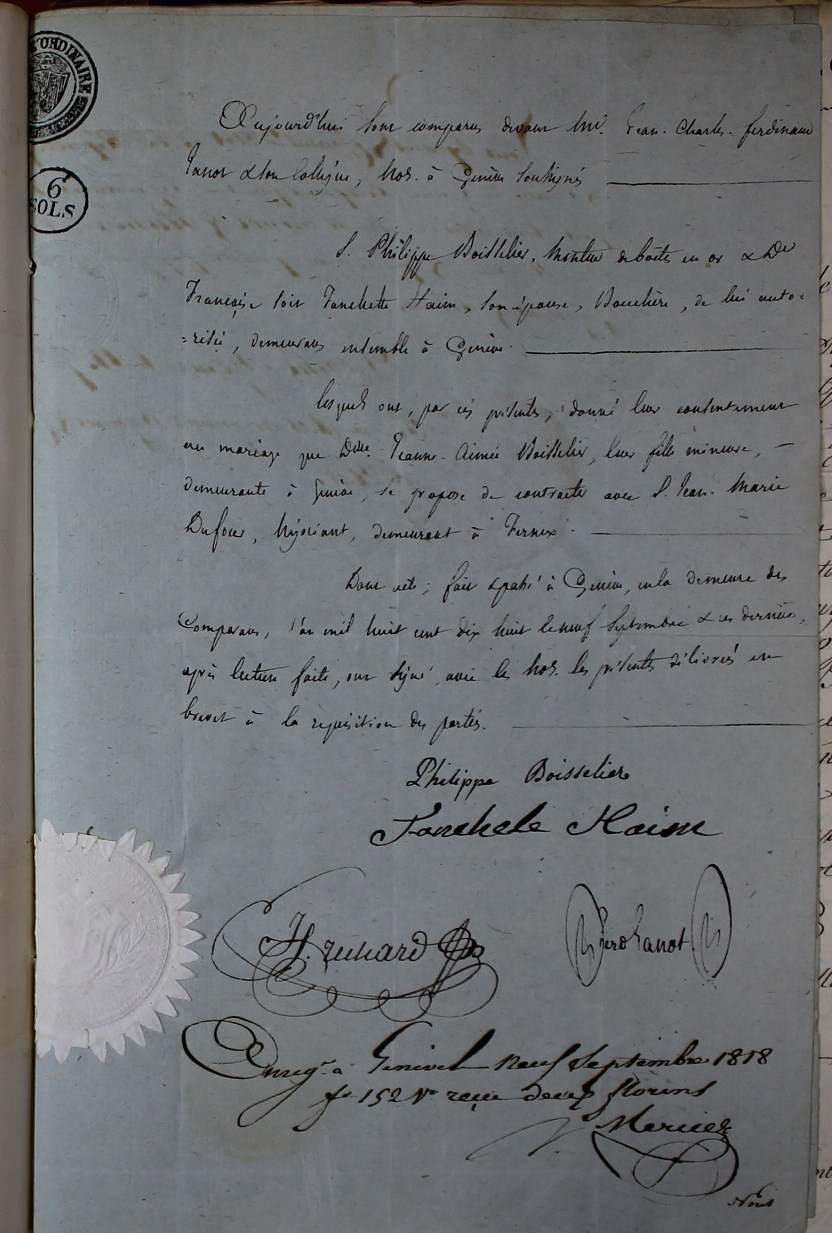 ORDINAIRE
6
SOLS
Aujourd'hui sont comparus devant Me. Jean-Charles-ferdinand
Janot & son Collègue, Nores. à Genève soussignés
S. Philippe Boisselier, Monteur de boëtes en or & De
Françoise soit Fanchette Haim, son épouse, Bouchère, de lui auto-
=risée, demeurans ensemble à Genève.
lesquels ont, par ces présentes, donné leur consentement
au mariage que Delle. Jeanne-Aimée Boisselier, leur fille mineure,
demeurante à Genève, se propose de contracter avec S. Jean-Marie
Dufour, Négociant, demeurant à Fernex.
Dont acte; fait & passé à Genève, en la demeure des
Comparans, l'an mil huit cent dix huit le neuf Septembre & ces derniers,
après lecture faite, ont signé avec les Nores. les présentes délivrées en
brevet à la requisition des parties.
Philippe Boisselier
Fanchete Haim
H. Richard
ferd Janot
Enregé. à Genève le Neuf Septembre 1818
fo. 152 Vo reçu deux florins
Mercier
Nous